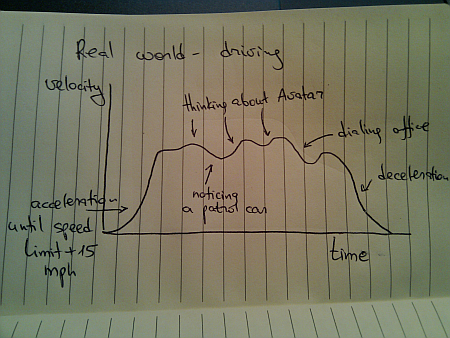 Real world - driving
velocity
thinking about Avatar
dialing office
deceleration
noticing
a patrol car
acceleration
until speed
limit +15
mph
time